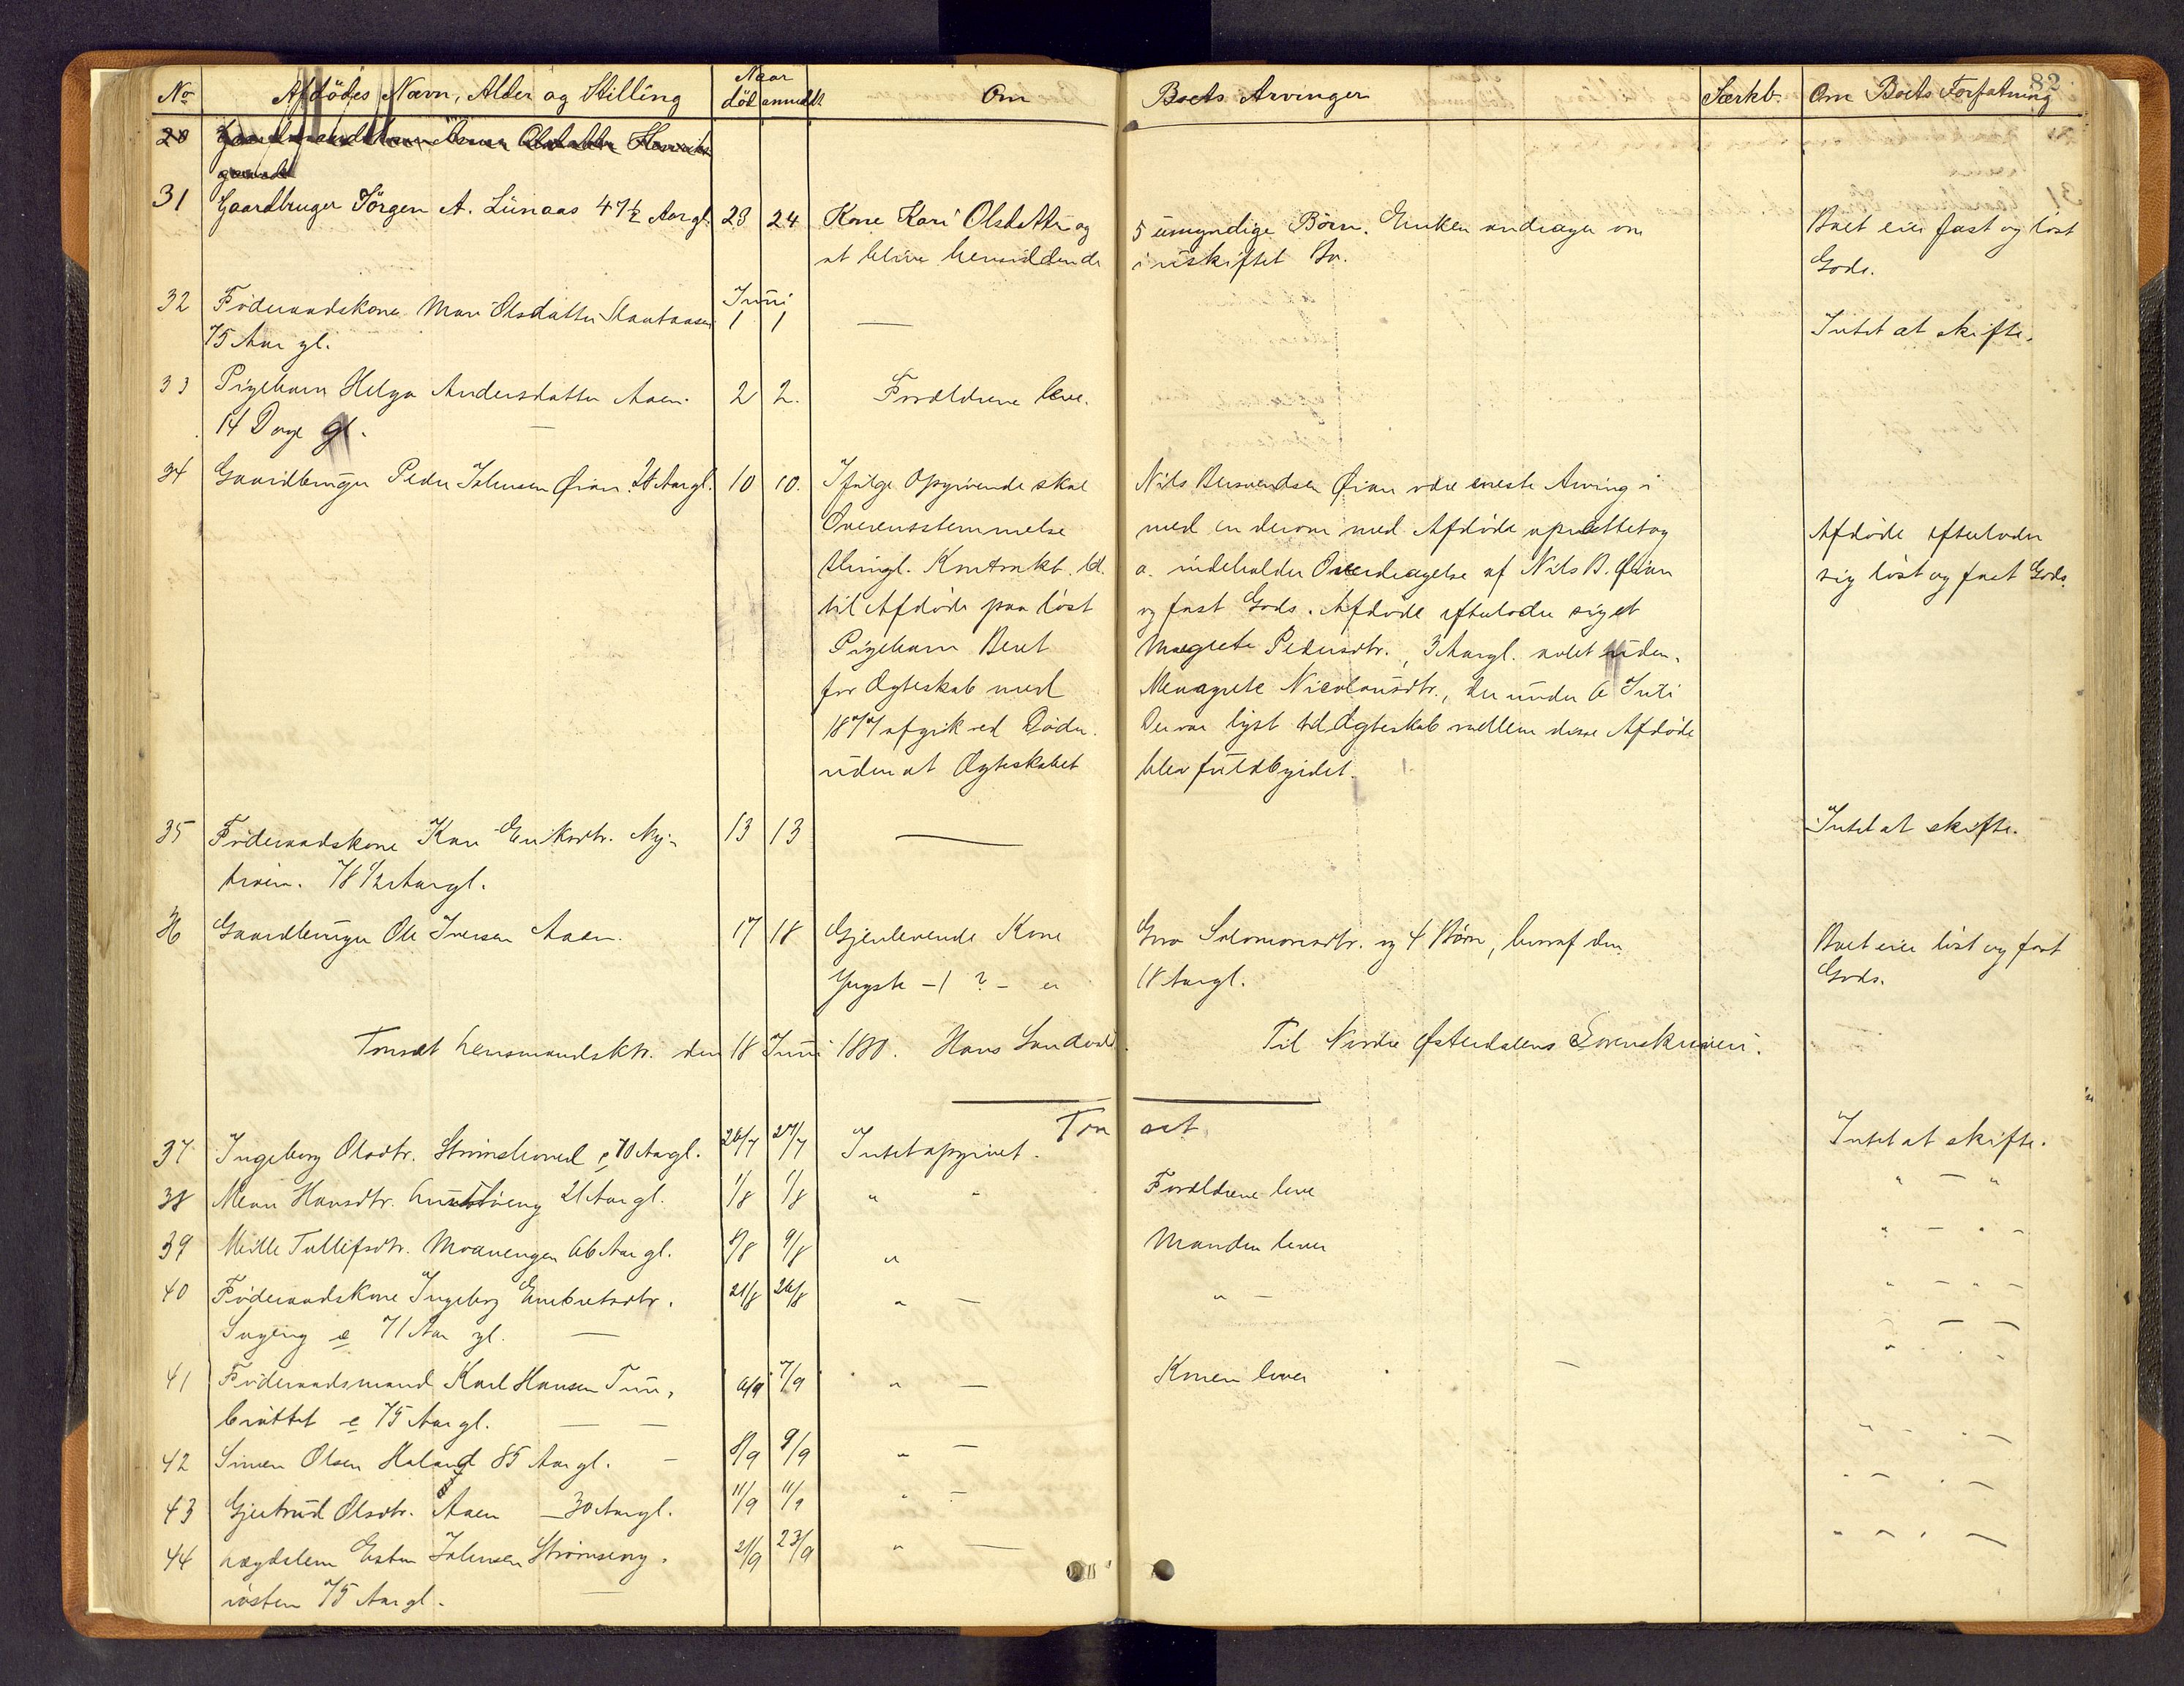 82
No Afdödes Navn, Alder og Stilling Naar död anmeldt Om Boets Arvinger Særkb. Om Boets Forfatning
31 Gaardbruger Jörgen A. Lünaas 47½ Aar gl. 23 24 Kone Kari Olsdatter og 5 umyndige Börn. Enken andrager om Boet eier fast og löst
at blive hensiddende i uskiftet Bo. Gods.
32 Föderaadskone Mari Olsdatter Juni 1 1 — Intet at skifte.
75 Aar gl.
33 Pigebarn Helga Andersdatter Aaen. 2 2. Forældrene leve.
14 Dage gl. —
34 Gaardbruger Peder Johnsen Øian 28 Aar gl. 10 10. Ifölge Opgivende skal Nils Bersvendsen Øian være eneste Arving i
Overensstemmelse med en derom med Afdöde oprettet og Afdöde efterlader
thingl. Kontrakt. M. a. indeholder Overdragelse af Nils B. Øian sig löst og fast Gods.
til Afdöde paa löst og fast Gods. Afdöde efterlader sig et
Pigebarn Berit Margrete Pedersdtr., 3 Aar gl. avlet uden-
for Ægteskab med Margrete Nicolausdtr., der under 6 Juli
18 afgik ved Döden. Der var lyst til Ægteskab mellem disse Afdöde
uden at Ægteskabet blev fuldbyrdet.
35 Föderaadskone Kari Eriksdtr. Ny- 13 13 — Intet at skifte.
78 1/2 Aar gl.
36 Gaardbruger Ole Iversen Aaen. 17 18 Gjenlevende Kone Goro Solomonsdtr. og 4 Börn, hvoraf den Boet eier löst og fast
Yngste – 1 ? – er 18 Aar gl. Gods.
Tønset Lensmandsktr. den 18 Juni 1880. Hans Sandvold. Til Nordre Østerdalens Sorenskriveri.
Tønset
37 Ingeborg Olsdtr. Strömshoved e 70 Aar gl. 26/7 27/7 Intet opgivet. Intet at skifte.
38 Mari Hansdtr. 21 Aar gl. 1/8 1/8 " " Forældrene leve " – "
39 Mille Tollefsdtr. Moavengen 66 Aar gl. 8/8 9/8 " Manden lever " – " –
40 Föderaadskone Ingeborg Embretsdtr. 21/8 26/8 " — " — " – " –
e 71 Aar gl. — — —
41 Föderaadsmand Karl Hansen Tron- 6/9 7/9 " — Konen lever —
bröttet e 75 Aar gl. — —
42 Simen Olsen Haland 85 Aar gl. – 8/9 9/9 " —
43 Gjertrud Olsdtr. Aaen – 30 Aar gl. 11/9 11/9 " –
44 Lægdslem Esten Johnsen Strömseng- 21/9 23/9 " —
75 Aar gl. —